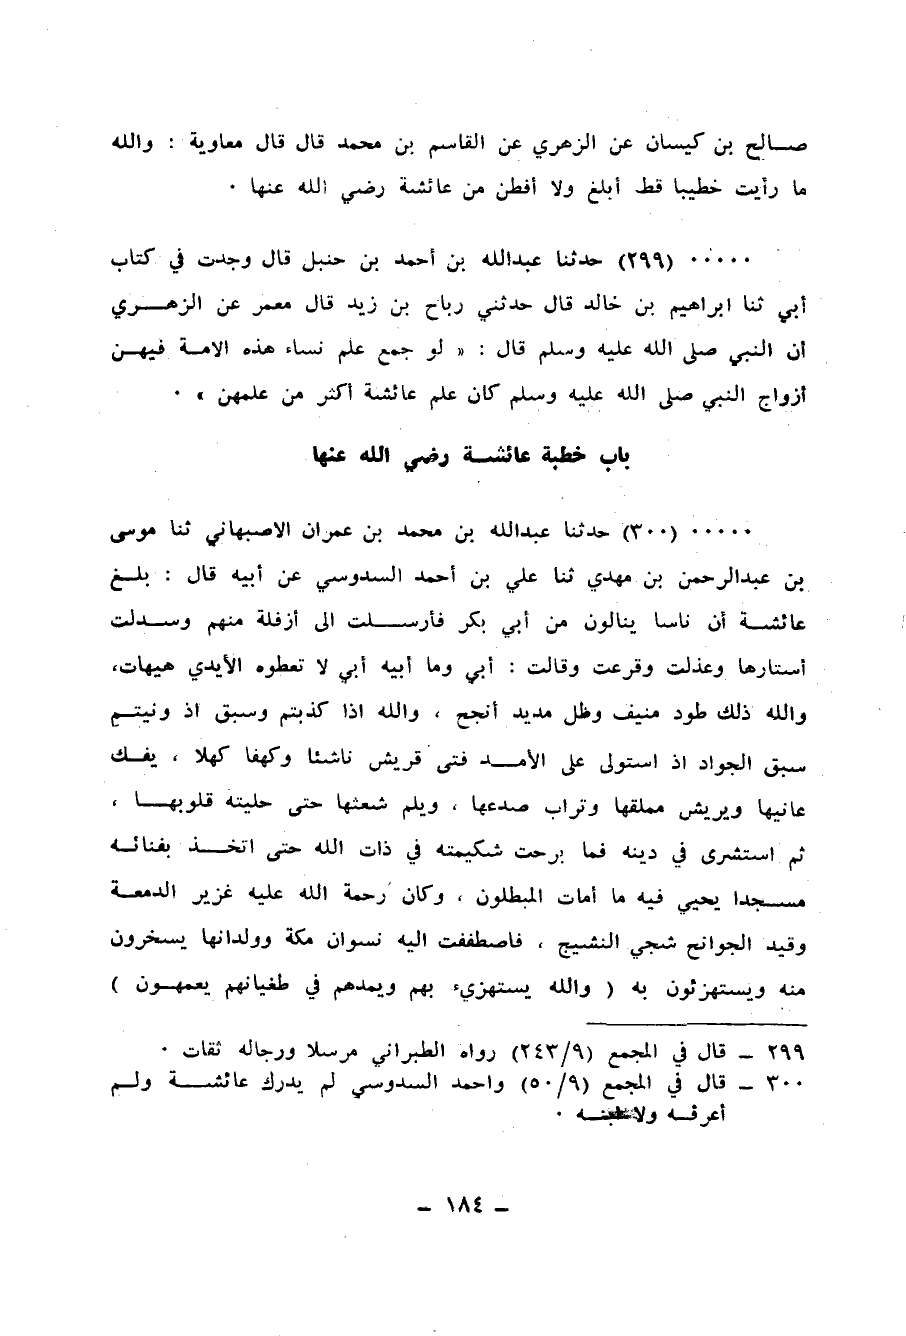 صالح بن كيسان عن الزهري عن القاسم بن محمد قال قال معاوية : والله
ما رأيت خطيبا قط أبلغ ولا أفطن من عائشة رضي الله عنها ٠
٠٠٠٠٠ (٢٩٩) حدثنا عبدالله بن أحمد بن حنبل قال وجدت في كتاب
أبي ثنا ابراهيم بن خالد قال حدثني رباح بن زيد قال معمر عن الزهري
أن النبي صلى الله عليه وسلم قال : « لو جمع علم نساء هذه الامة فيهن
أزواج النبي صلى الله عليه وسلم كان علم عائشة أكثر من علمهن » ٠
باب خطبة عائشة رضي الله عنها
٠٠٠٠٠ (٣٠٠) حدثنا عبدالله بن محمد بن عمران الاصبهاني ثنا موسى
بن عبدالرحمن بن مهدي ثنا علي بن أحمد السدوسي عن أبيه قال : بلغ
عائشة أن ناسا ينالون من أبي بكر فأرسلت الى أزفلة منهم وسدلت
أستارها وعذلت وقرعت وقالت : أبي وما أبيه أبي لا تعطوه الأيدي هيهات،
والله ذلك طود منيف وظل مديد أنجح ، والله اذا كذبتم وسبق اذ ونيتم
سبق الجواد اذ استولى على الأمد فتى قريش ناشئا وكهفا كهلا ، يفك
عانيها ويريش مملقها وتراب صدعها ، ويلم شعثها حتى حليته قلوبها ،
ثم استشرى في دينه فما برحت شكيمته في ذات الله حتى اتخذ بفنائه
مسجدا يحيي فيه ما أمات المبطلون ، وكان رحمة الله عليه غزير الدمعة
وقيد الجوانح شجي النشيج ، فاصطفقت اليه نسوان مكة وولدانها يسخرون
منه ويستهزئون به ( والله يستهزيء بهم ويمدهم في طغيانهم يعمهون )
٢٩٩ ـ قال في المجمع (٢٤٣/٩) رواه الطبراني مرسلا ورجاله ثقات ٠
٣٠٠ ـ قال في المجمع (٥٠/٩) واحمد السدوسي لم يدرك عائشة ولم
أعرفه ٠
ـ ١٨٤ ـ